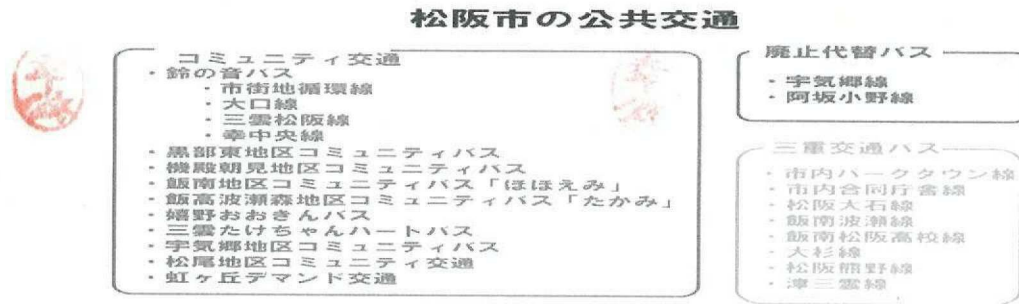 松阪市の公共交通
コミュニティ交通
・鈴の音バス
・市街地循環線
・大口線
・三雲松阪線
・幸中央線
・黒部東地区コミュニティバス
・機殿朝見地区コミュニティバス
・飯南地区コミュニティバス「ほほえみ」
・飯高波瀬森地区コミュニティバス「たかみ」
・嬉野おおきんバス
・三雲たけちゃんハートバス
・宇気郷地区コミュニティバス
・松尾地区コミュニティ交通
・虹ヶ丘デマンド交通
廃止代替バス
・宇気郷線
・阿坂小野線
三重交通バス
・市内パークタウン線
・市内合同庁舎線
・松阪大石線
・飯南波瀬線
・飯南松阪高校線
・大杉線
・松阪熊野線
・津三雲線